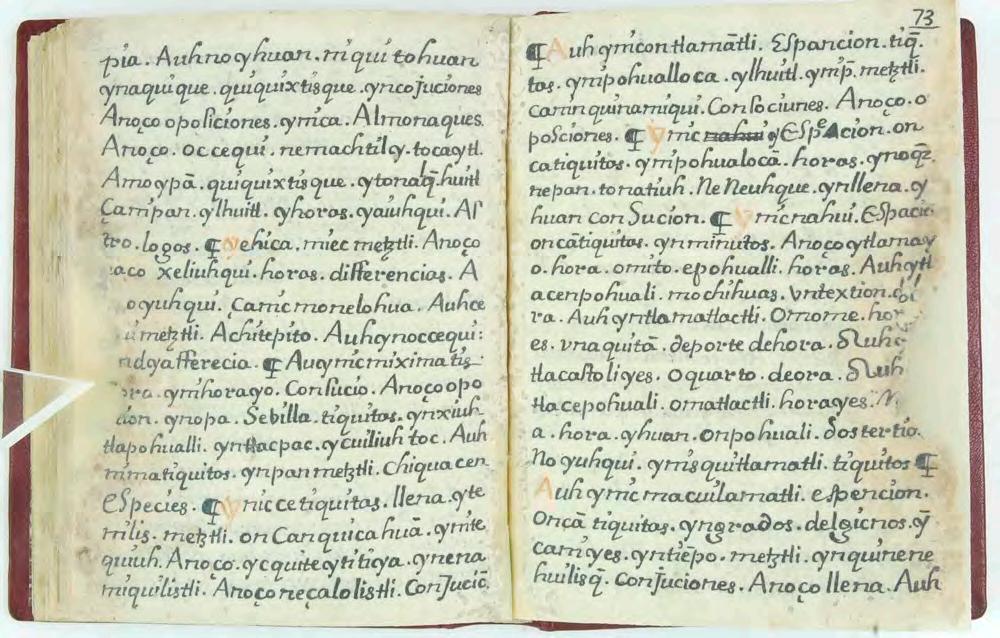 pia. Auh no yhuan. miqui to huan
ynaquique. quiquixtisque. ynco juciones
Anoço oposiciones. ymica. Almonaques.
Anoço. occequi. nemachtil y. tocaytl.
Amoypã. quiquixtisque. ytonalq̃. huitl
Çampan. ylhuitl. yhoras. yaiuhqui. As
tro.logos. ¶ Yehica. miec meztli. Anoço
xeliuhqui. horas. differencias. A
oyuhqui. çamic monelohua. Auh ce
meztli. Achitepito. Auh ynoccequi:
yafferecia. ¶ Auymic miximatis
ora. ymhorayo. Consucio. Anoço opo
ynopa. Sebilla. tiquitas. ynxiuh
tlapohualli. yntlacpac. ycuiliuh toc. Auh
nimatiquitos. ynpan meztli. Chiquacen
eSpecies. ¶ Ynic ce tiquitas. llena. yte
milis. meztli. on Canquicahuã. ymte
quiuh. Anoço. ycquiteytitiya. ynena
miquilistli. Anoço neçalolistli. Conjucic̃
73
¶ Auh ymicontlamãtli. ESpancion. tiq̃.
tas. ympohualloca. ylhuitl. ymp̃. meztli.
canin quinamiqui. Con sociunes. Anoço. o
posciones. ¶ Ymic nahui y ESpeAcion. on
catiquitas. ympohualocã. horas. ynoq̃z.
nepan. tonatiuh. Ne Neuhque. ynllena. y
huan con Sucion. ¶ Ymic nahui. ESpacie
oncãtiquitas. ynminutos. Anoço ytlamay
o. hora. omito. epohualli. horas. Auh ytl
acenpohuali. mochihuas. Vntextion.
ra. Auh yntlamatlactli. Omome. hor
es. vnaquitã. deporte dehora. Auh
tlacastoli yes. O quarto. deora. Auh
tlacepohuali. omatlactli. horayes.
a. hora. yhuan. onpohuali. dos tertio.
No yuhqui. ymisquitlamatli. tiquitos ¶
Auh ymic macuilamatli. espencion.
Oncã tiquitas. yngrados. delgicnos. ỹ
cam yes. yntiẽpo. meztli. ynquinene
huilisq̃. Conjuciones. Anoço llena. Auh